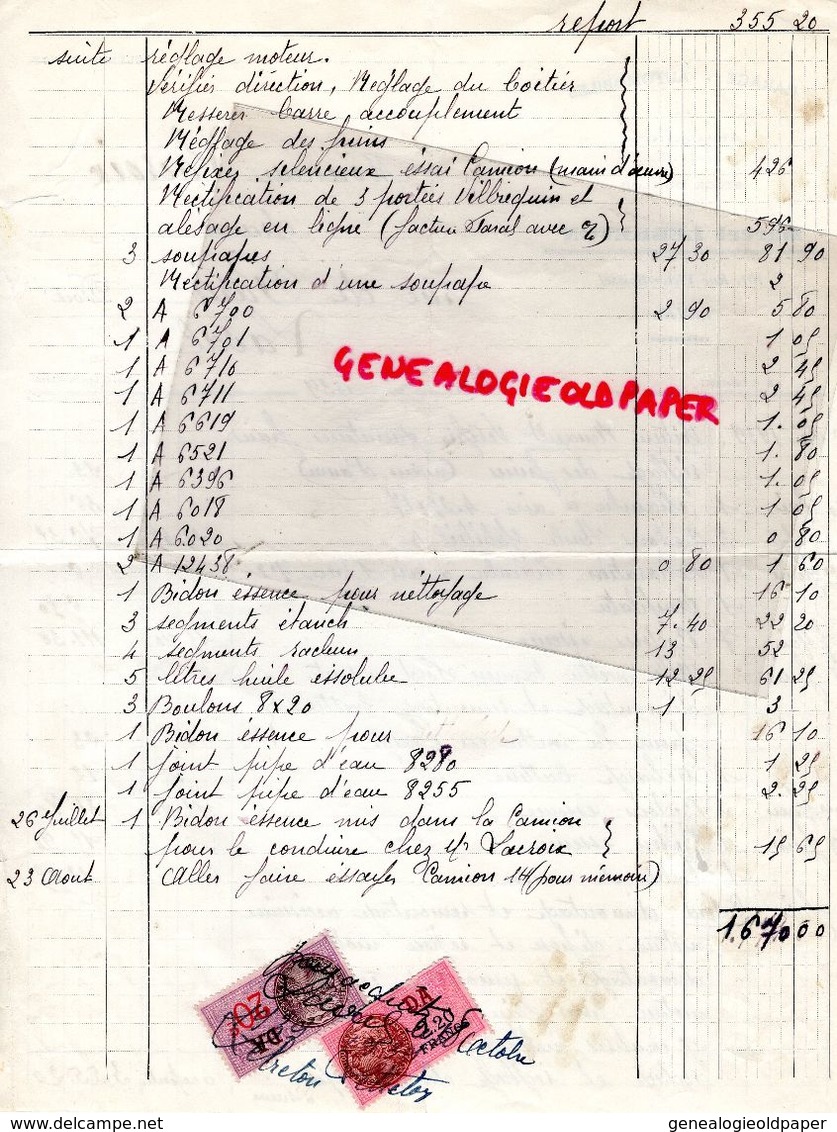 report 355 20
suite réglage moteur.
Vérifier direction, Reglage du boitier
Resserer barre accouplement
Réglage des freins
Refixer selencieux éssai Camion (main d'œuvre) 426
Rectification de 3 portées Vilbrequin et
alésage en ligne (facture avec 596
3 soupapes 27 30 81 90
Rectification d'une soupape 2
2 A 6700 2 90 5 80
1 A 6701 1 05
1 A 6710 2 45
1 A 6711 2 45
1 A 6619 1.05
1 A 6521 1.80
1 A 6396 1.05
1 A 6018 1 05
1 A 6020 0 80
2 A 12438 0 80 1 60
1 Bidon éssence pour néttoyage 16 10
3 segments étanch 7.40 22 20
4 segments racleur 13 52
5 litres huile éssolube 12 25 61 25
3 Boulons 8x20 1 3
1 Bidon éssence pour 16 10
1 joint pipe d'eau 8280 1 25
1 joint pipe d'eau 8255 2.25
26 Juillet 1 Bidon éssence mis dans la Camion
pour le conduire chez Mr Lacroix 15 65
23 Aout Aller faire éssayer Camion 14 (pour mémoire)
1.670 00
GENEALOGIEOLDPAPER
octobre
FRANC
genealogieoldpaper